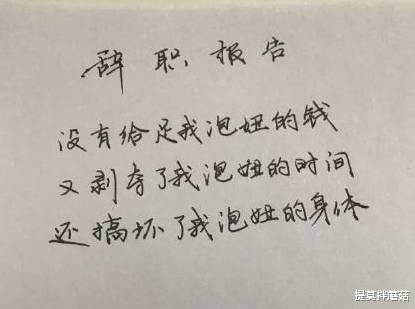 辞职报告
没有给足我泡妞的钱
又剥夺了我泡妞的时间
还搞坏了我泡妞的身体
提莫拌蘑菇